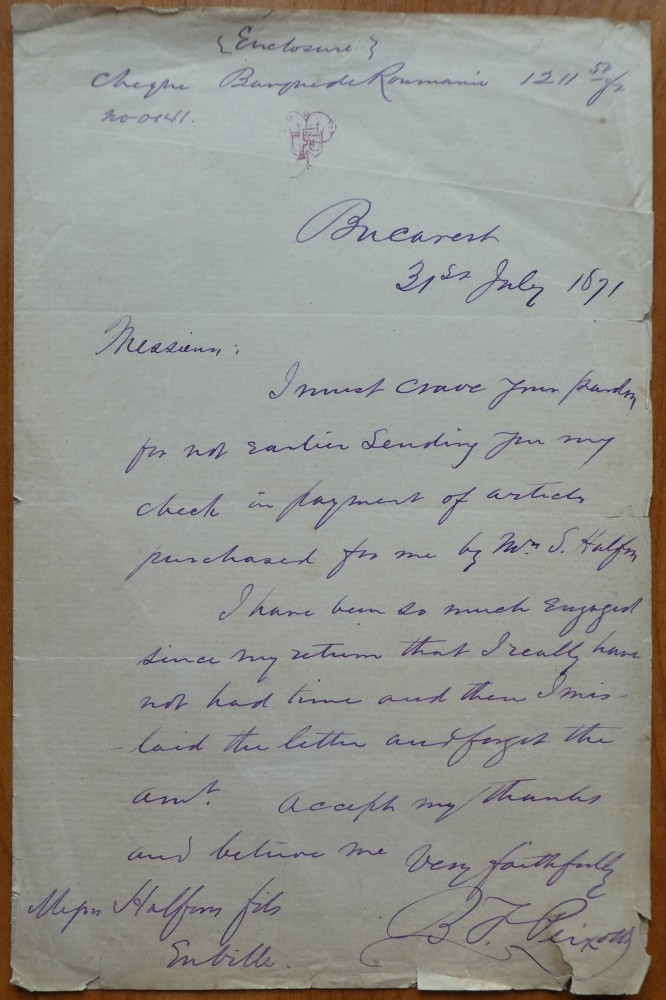 {Enclosure}
Cheque Banque de Roumanie 1211 50 frs
no 0041.
Bucarest
31st July 1871
Messieurs:
I must crave your pardon
for not earlier sending you my
check in payment of articles
purchased for me by Mrs S. Halfon
I have been so much engaged
since my return that I really have
not had time and then I mis-
-laid the letter and forgot the
amt. Accept my thanks
and believe me Very faithfully
B. F. Peixotto
Messrs Halfon fils
Enville.